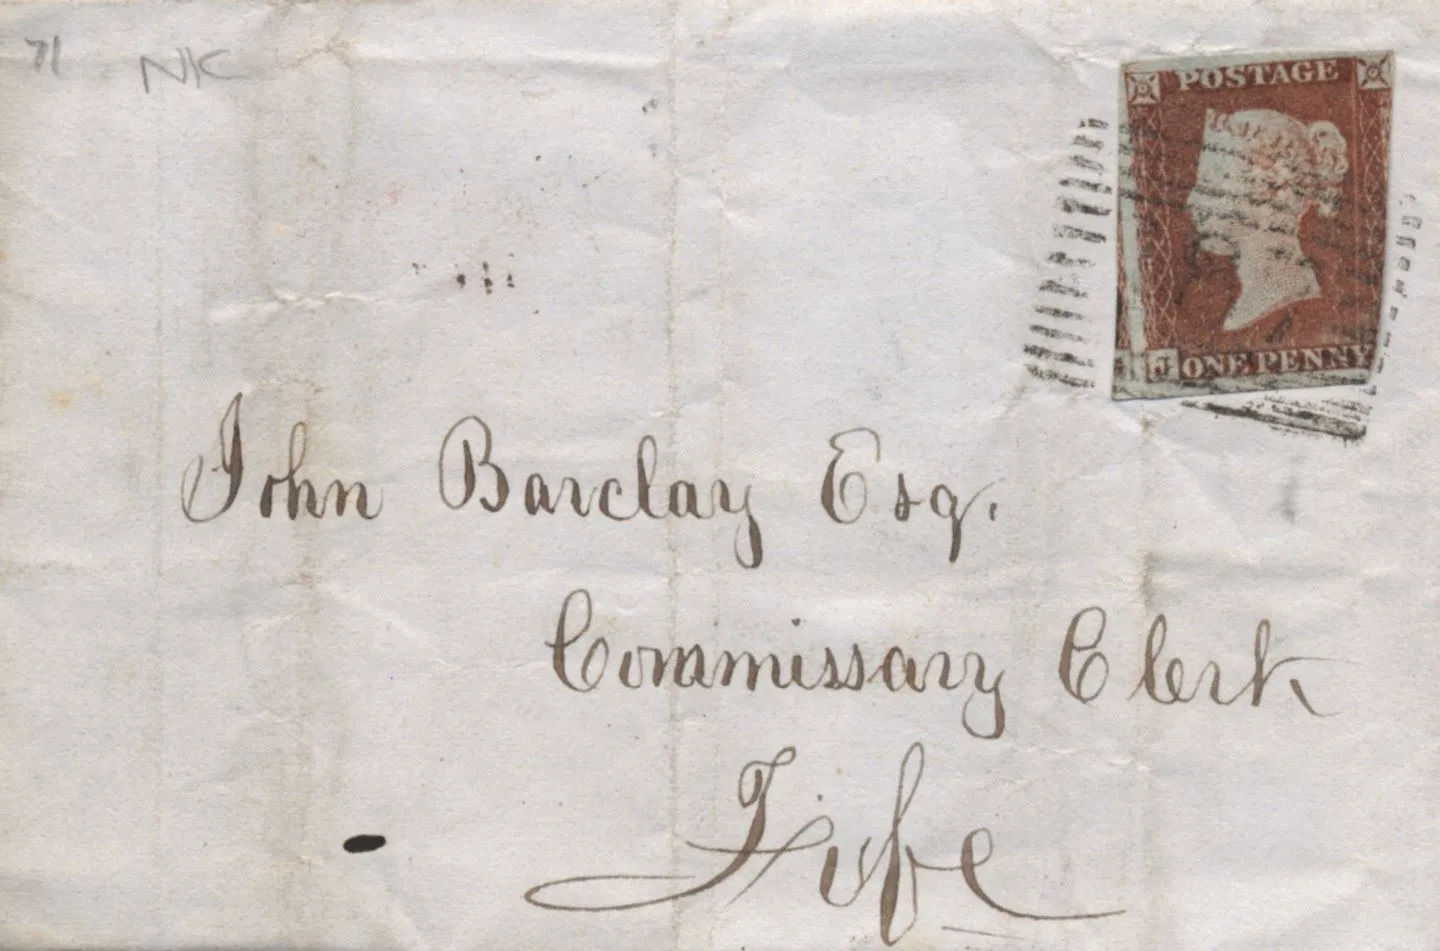 71 NK
POSTAGE
J ONE PENNY
John Barclay Esq.
Commissary Clerk
Fife